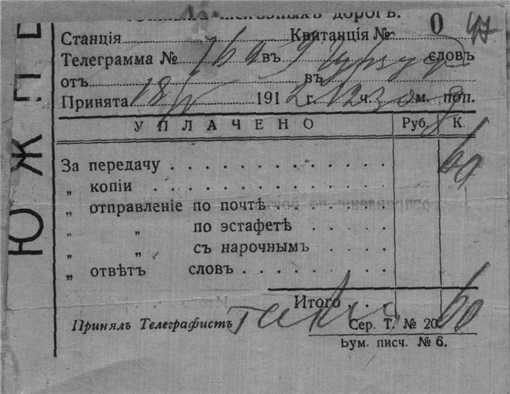 желѣзныхъ дорогъ.
Станція Квитанція № 0
Телеграмма № въ словъ
отъ въ
Принята 18 1912 г. 12 ч. м. поп.
УПЛАЧЕНО Руб. К.
За передачу . . . . . . . . . . 60
„ копіи . . . . . . . . . . . .
„ отправленіе по почтѣ . . . . . .
„ „ по эстафетѣ . . . .
„ „ съ нарочнымъ . . .
„ отвѣтъ словъ . . . . . . . .
Итого . . . 60
Принялъ Телеграфистъ
Сер. Т. № 20.
Бум. писч. № 6.
ЮЖН